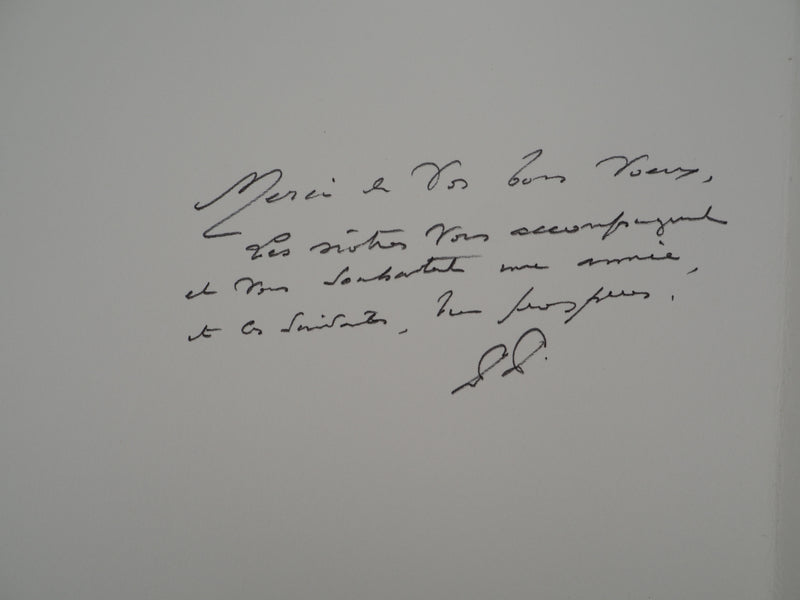 Merci de Vos bons Voeux,
Les nôtres Vous accompagnent
et Vous souhaitent une année,
et les suivantes, bien prospères.
P.P.